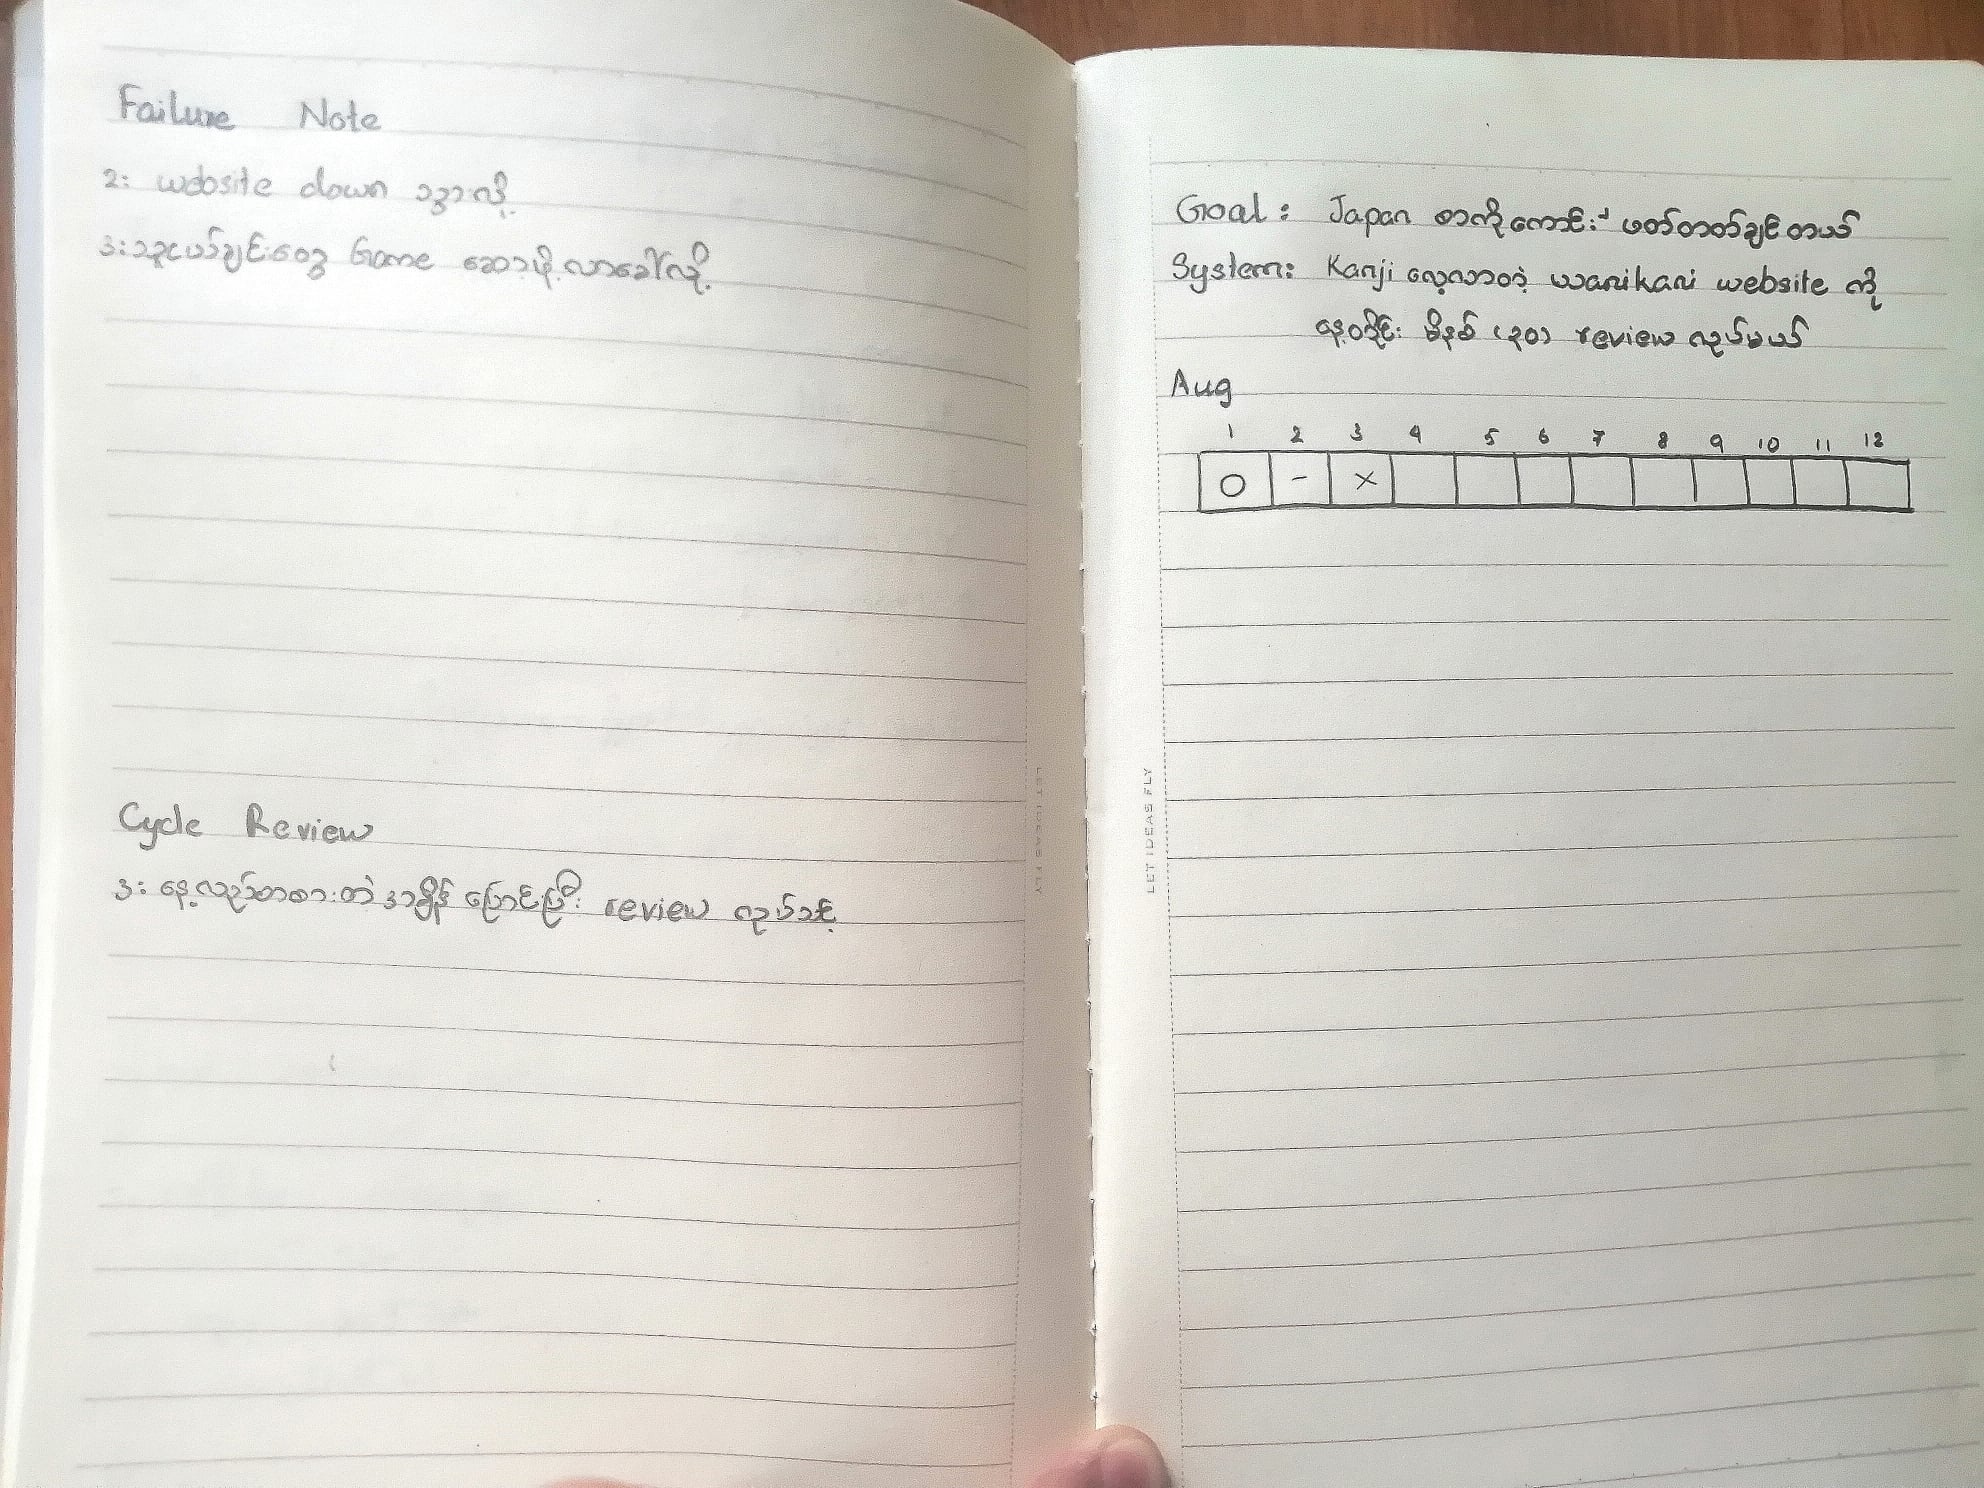 Failure Note
2: website down သွားလို့
3: သူငယ်ချင်းတွေ Game ဆော့ဖို့ လာခေါ်လို့
Cycle Review
3: နေ့လည်စာစားတဲ့ အချိန် ပြောင်းပြီး review လုပ်သင့်
LET IDEAS FLY
Goal: Japan စာကိုကောင်းကောင်း ဖတ်တတ်ချင်တယ်
System: Kanji လေ့လာတဲ့ wanikani website ကို
နေ့တိုင်း မိနစ် (၃၀) review လုပ်မယ်
Aug
1 2 3 4 5 6 7 8 9 10 11 12
O - ×
LET IDEAS FLY